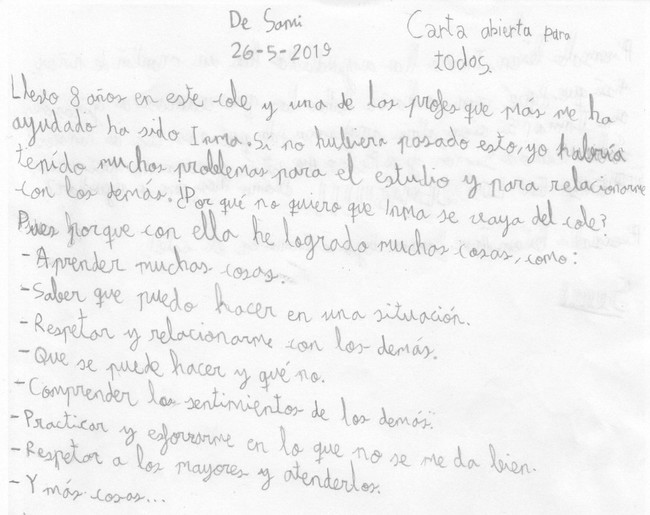 De Sami
26-5-2019
Carta abierta para
todos.
Llevo 8 años en este cole y una de las profes que más me ha
ayudado ha sido Inma. Si no hubiera pasado esto, yo habría
tenido muchos problemas para el estudio y para relacionarme
con los demás. ¿Por qué no quiero que Inma se vaya del cole?
Pues porque con ella he logrado muchas cosas, como:
- Aprender muchas cosas.
- Saber que puedo hacer en una situación.
- Respetar y relacionarme con los demás.
- Que se puede hacer y qué no.
- Comprender los sentimientos de los demás.
- Practicar y esforrarme en lo que no se me da bien.
- Respetar a los mayores y atenderlos.
- Y más cosas...